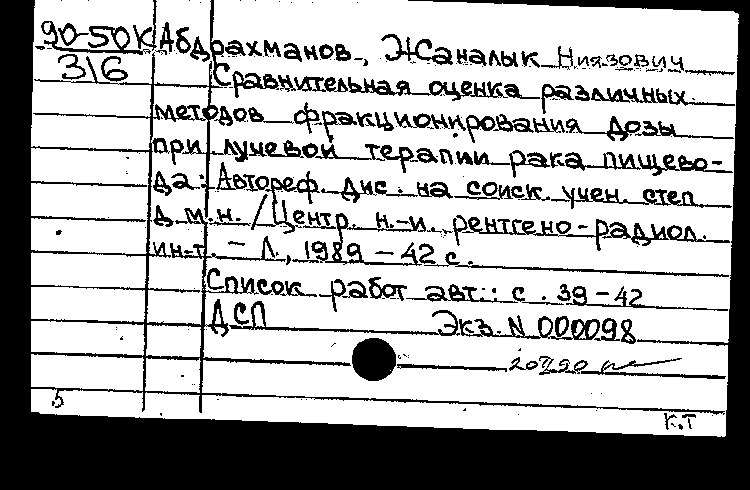 90-50К Абдрахманов, Жаналык Ниязович
316 Сравнительная оценка различных
методов фракционирования дозы
при лучевой терапии рака пищево-
да: Автореф. дис. на соиск. учен. степ.
д.м.н. /Центр. н.-и. рентгено-радиол.
ин-т. - Л., 1989 - 42 с.
Список работ авт.: с. 39-42
ДСП Экз. N 000098
5 К.Т